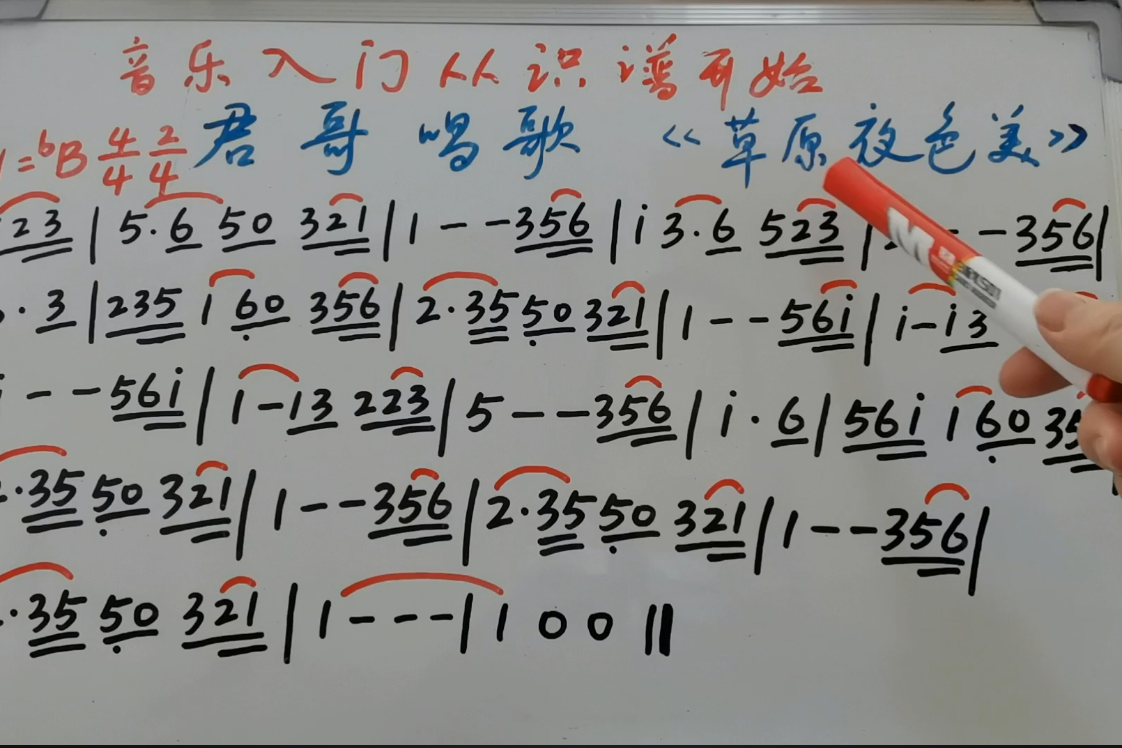 音乐入门从识谱开始
1=bB 4/4 2/4 君哥唱歌 《草原夜色美》
23 | 5·6 50 321 | 1 - - 356 | i 3·6 523 | - - 356 |
·3 | 235 i 60 356 | 2·35 50 321 | 1 - - 56i | i - i3
i - - 56i | 1 - 13 223 | 5 - - 356 | i·6 | 56i 1 60 35
2·35 50 321 | 1 - - 356 | 2·35 50 321 | 1 - - 356 |
·35 50 321 | 1 - - - | 1 0 0 ‖